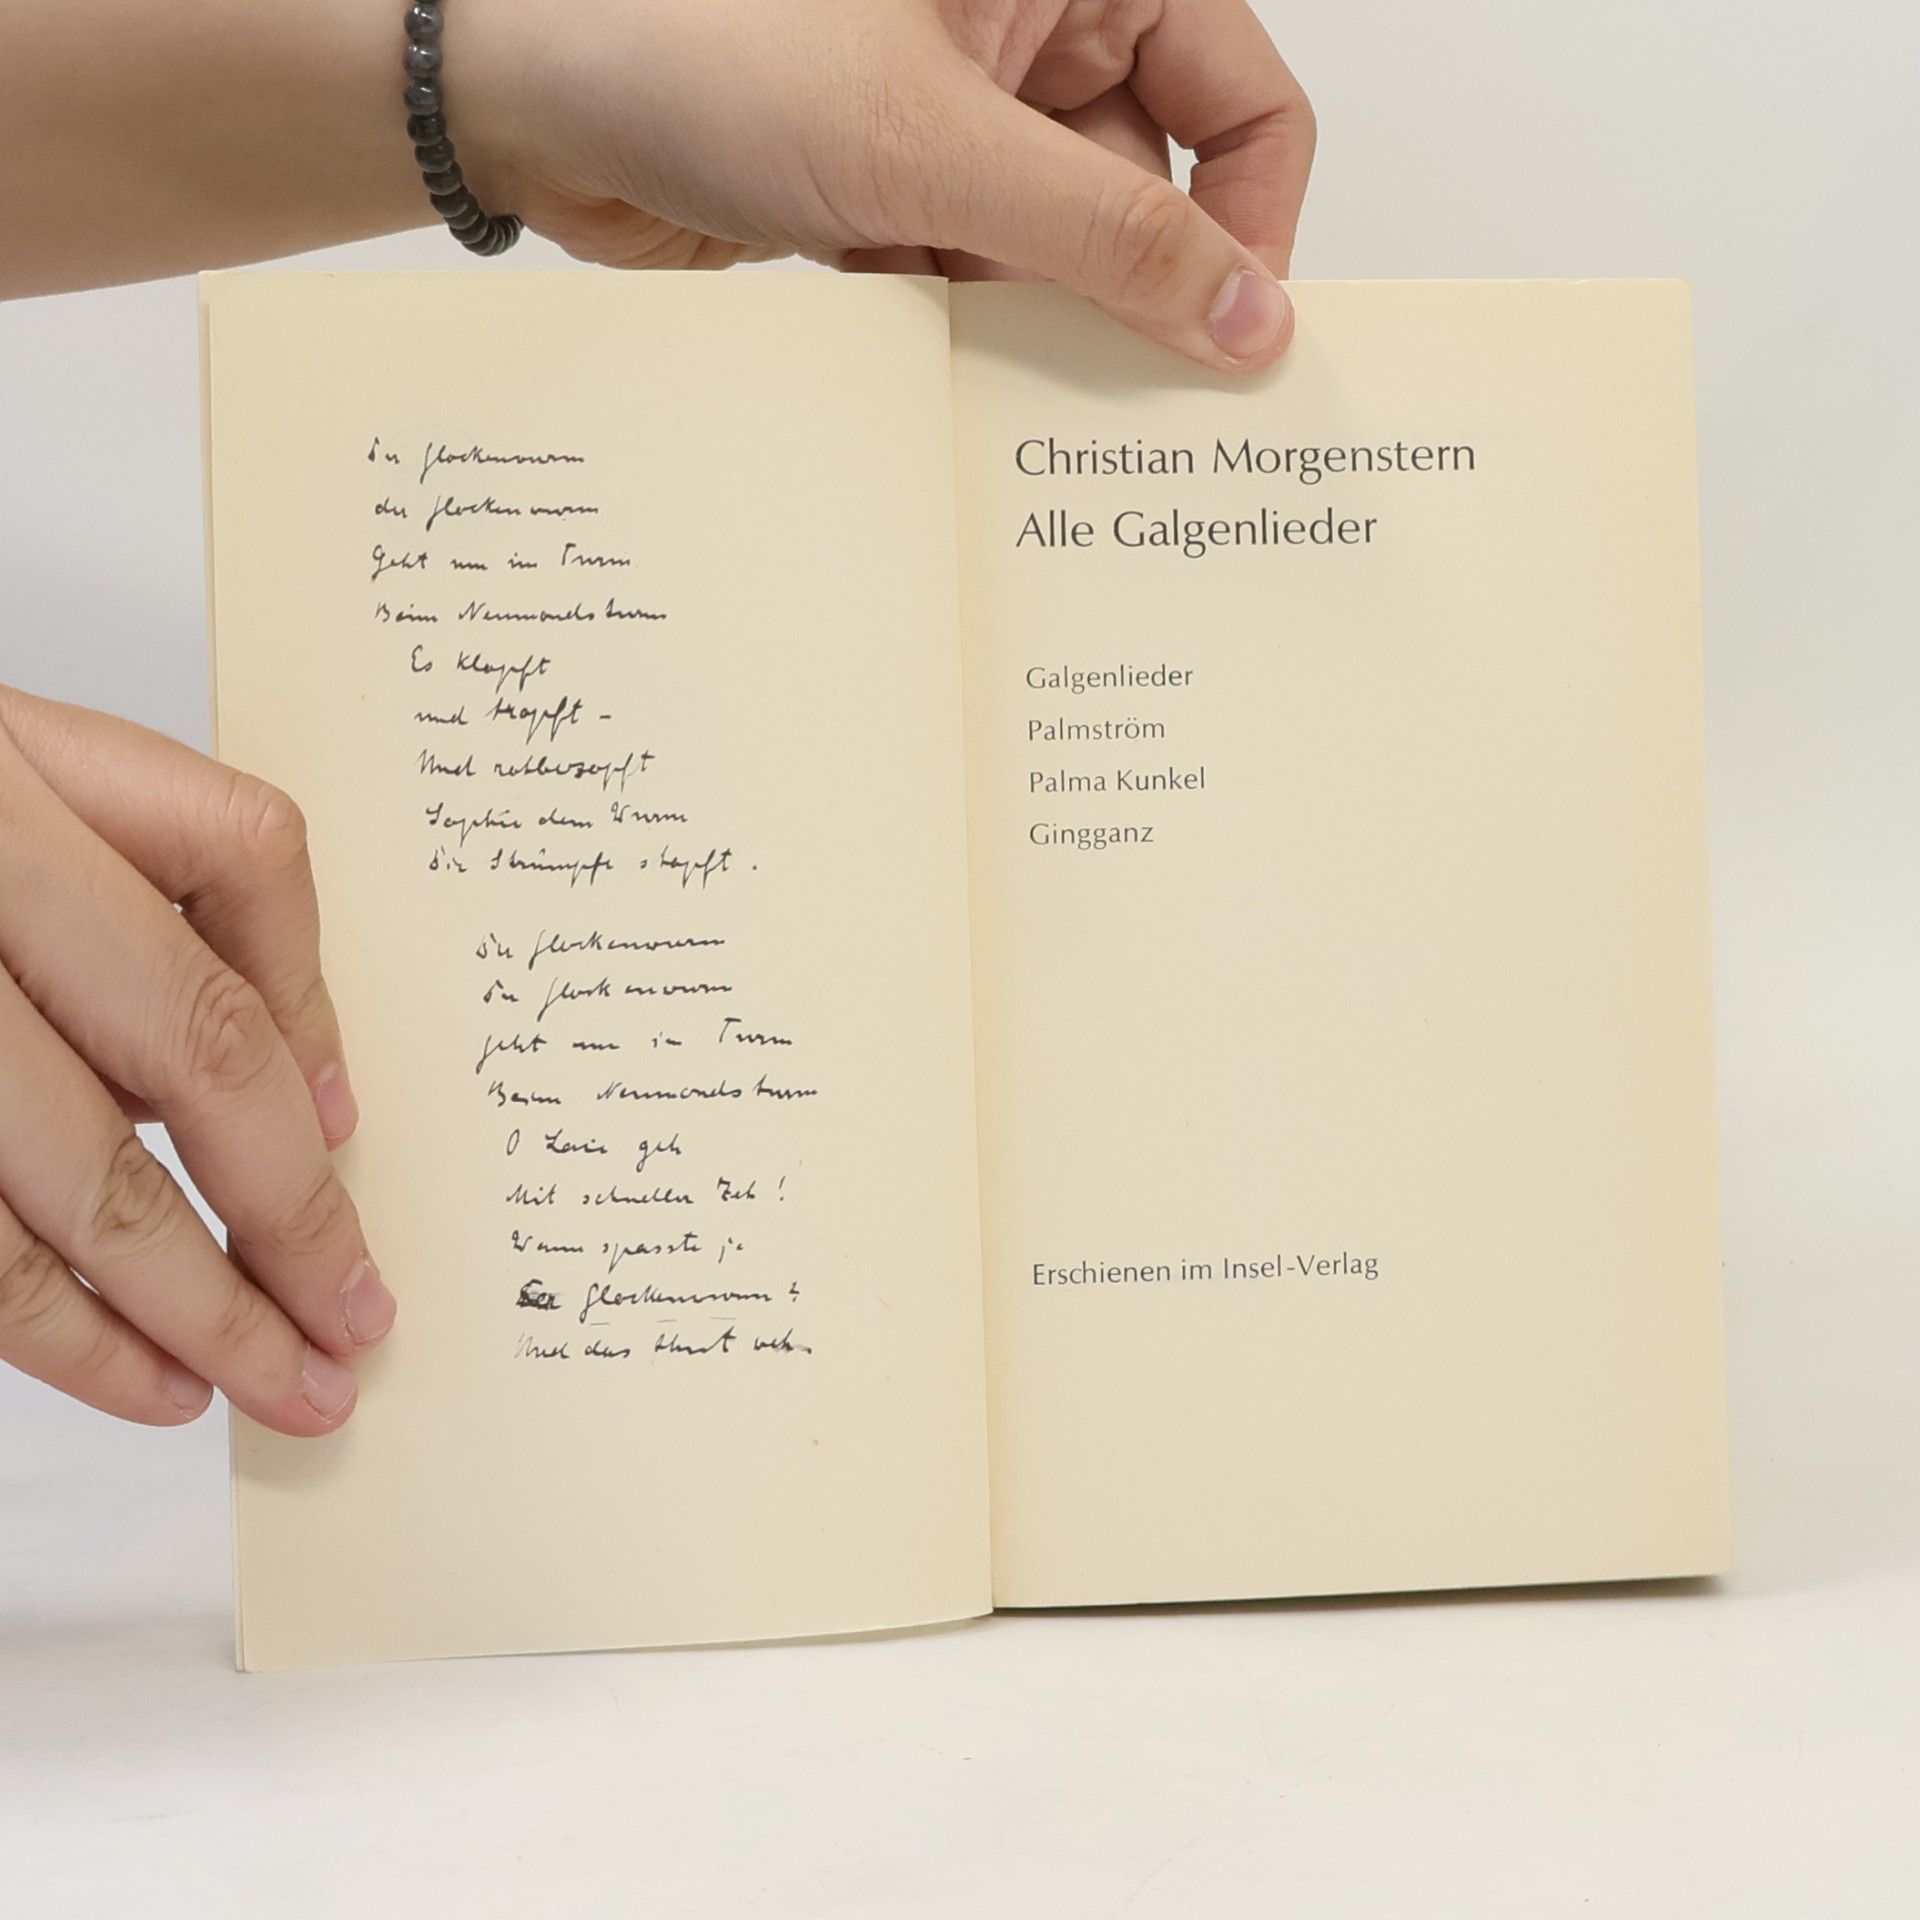 Der Glockenwurm
der Glockenwurm
Geht um im Turm
Beim Neumondsturm
Es klopft
und tropft –
Und rotbezopft
Sophie dem Wurm
Die Strümpfe stopft.
Der Glockenwurm
Der Glockenwurm
geht um im Turm
Beim Neumondsturm
O Lou geh
Mit schneller Zeh!
Wenn spasste je
Der Glockenwurm?
Und das thut weh.
Christian Morgenstern
Alle Galgenlieder
Galgenlieder
Palmström
Palma Kunkel
Gingganz
Erschienen im Insel-Verlag